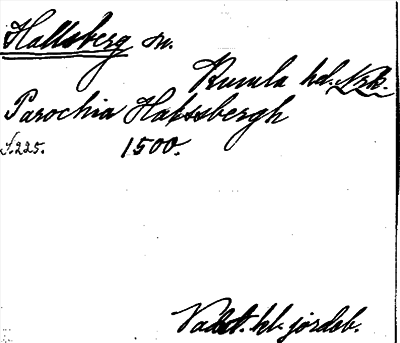 Hallsberg sn.
Kumla hd. Nrk.
Parochia Halssbergh
S. 225. 1500.
Vadst. kl. jordeb.